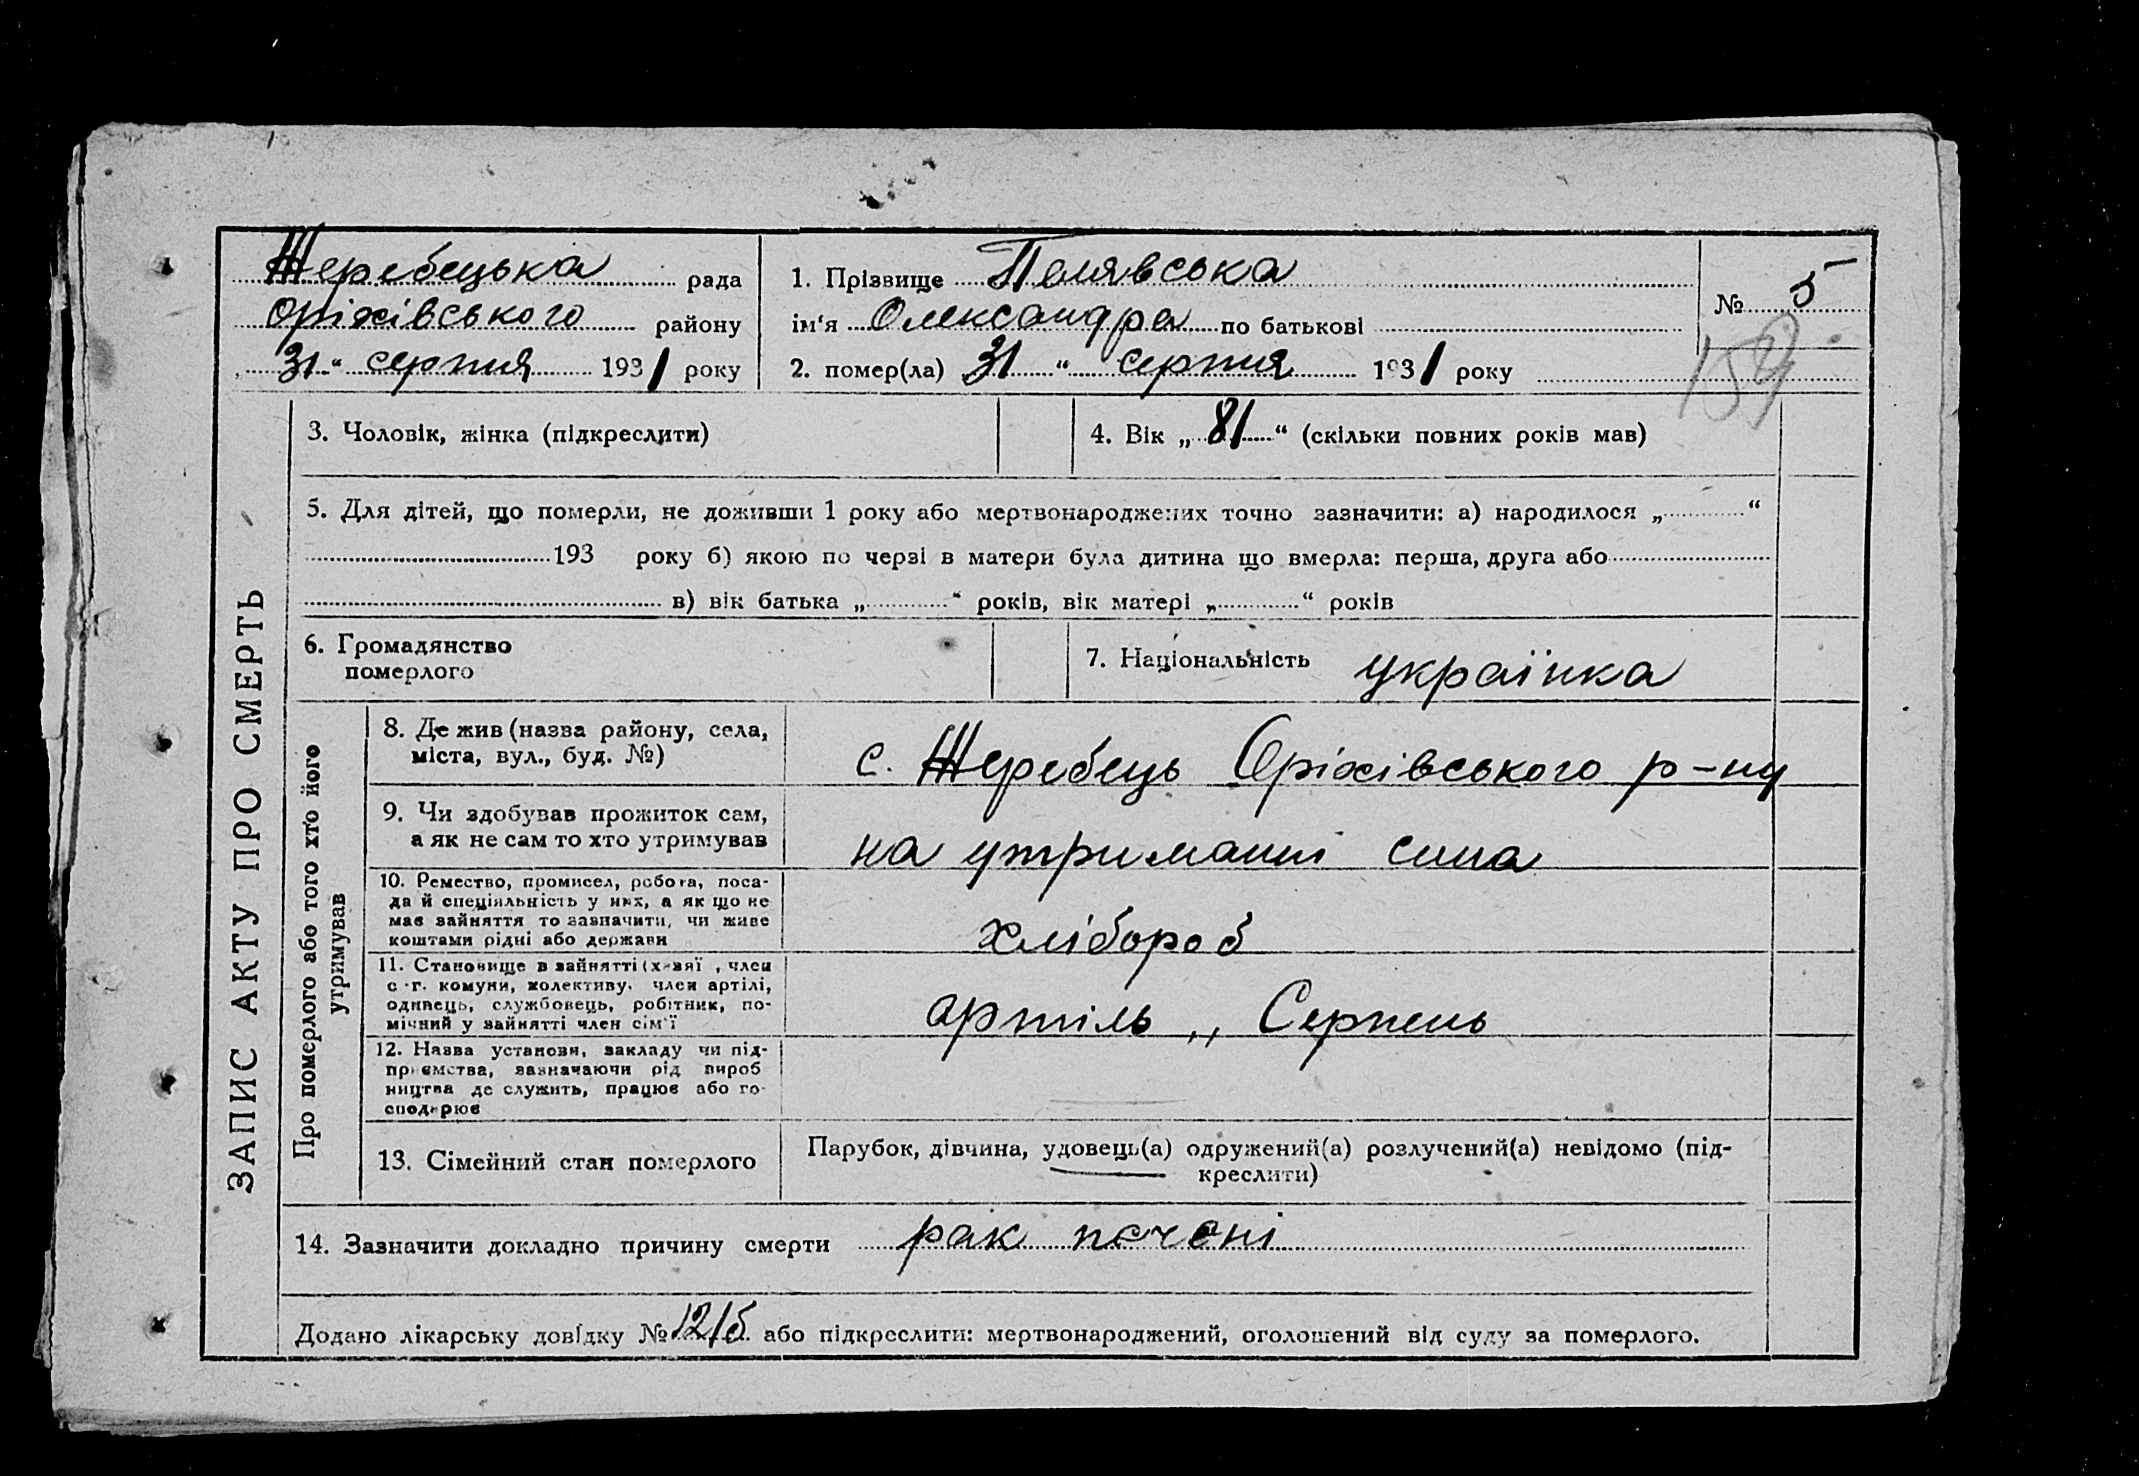 Жеребецька рада
Оріхівського району
31 " серпня 1931 року
1. Прізвище Полявська
ім'я Олександра по батькові
2. помер(ла) 31 " серпня 1931 року
№ 5
159
ЗАПИС АКТУ ПРО СМЕРТЬ
3. Чоловік, жінка (підкреслити)
4. Вік „ 81 “ (скільки повних років мав)
5. Для дітей, що померли, не доживши 1 року або мертвонароджених точно зазначити: а) народилося „ “
193 року б) якою по черзі в матери була дитина що вмерла: перша, друга або
в) вік батька „ “ років, вік матері „ “ років
6. Громадянство
померлого
7. Національність українка
Про померлого або того хто його
утримував
8. Де жив (назва району, села,
міста, вул., буд. №)
с. Жеребець Оріхівського р-ну
9. Чи здобував прожиток сам,
а як не сам то хто утримував
на утриманні сина
10. Ремество, промисел, робота, поса-
да й спеціяльність у них, а як що не
має зайняття то зазначити, чи живе
коштами рідні або держави
хлібороб
11. Становище в зайнятті (х-зяї , член
с.-г. комуни, колективу, член артілі,
одинець, службовець, робітник, по-
мічний у зайнятті член сім'ї
артіль „ Серпень
12. Назва установи, закладу чи під-
приємства, зазначаючи рід вироб
ництва де служить, працює або го-
сподарює
13. Сімейний стан померлого
Парубок, дівчина, удовець(а) одружений(а) розлучений(а) невідомо (під-
креслити)
14. Зазначити докладно причину смерти рак печені
Додано лікарську довідку № 12/5 або підкреслити: мертвонароджений, оголошений від суду за померлого.